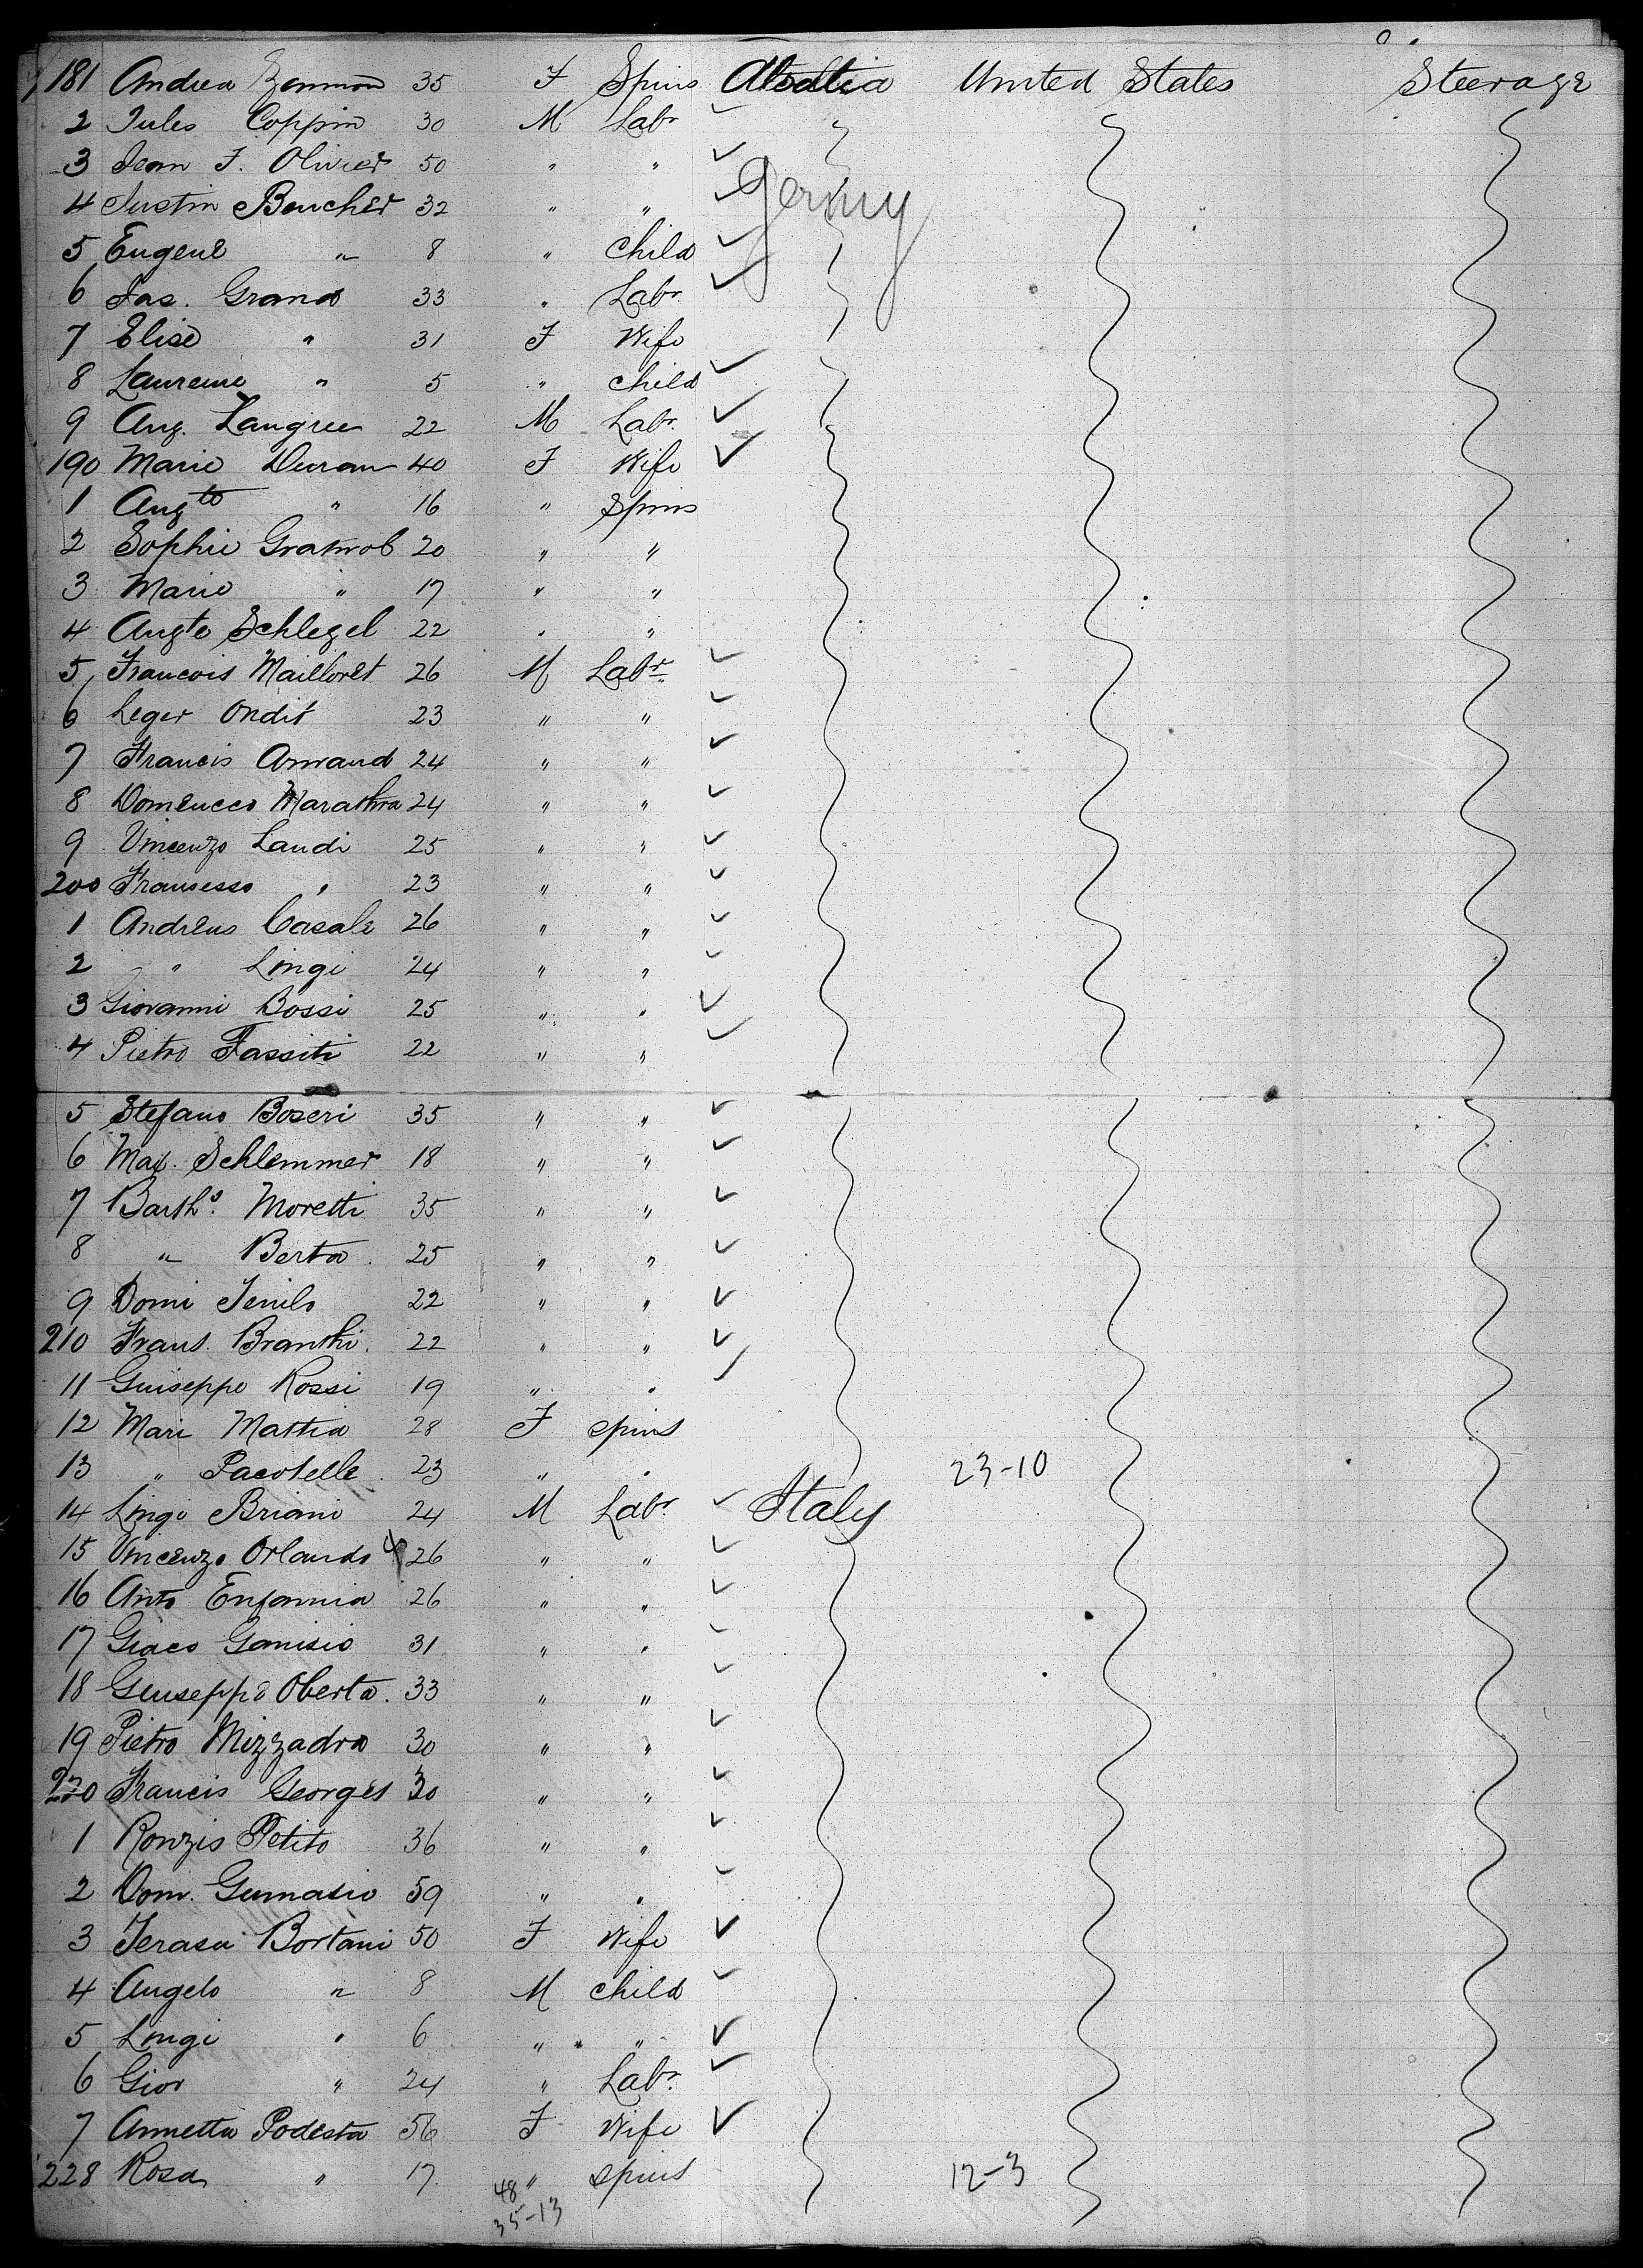 181 Andrea Zemmon 35 F Spins Alsatia United States Steerage
2 Jules Coppin 30 M Labr
3 Jean F. Olivier 50 " "
4 Justin Boucher 32 " " Germy
5 Eugene " 8 " Child
6 Jas. Grand 33 " Labr
7 Elise " 31 F Wife
8 Laurence " 5 " child
9 Aug. Langree 22 M Labr.
190 Marie Duran 40 F Wife
1 Augte " 16 " Spins
2 Sophie 20 " "
3 Marie " 17 " "
4 Augte Schlegel 22 " "
5 Francois Mailloret 26 M Labr
6 Leger Ondit 23 " "
7 Francis Arnaud 24 " "
8 Domenucco Marathra 24 " "
9 Vincenzo Landi 25 " "
200 Fransesso " 23 " "
1 Andreas Casale 26 " "
2 " Lingi 24 " "
3 Giovanni Bossi 25 " "
4 Pietro Fassiti 22 " "
5 Stefano Boseri 35 " "
6 Max. Schlemmer 18 " "
7 Bartho. Moretti 35 " "
8 " Berta 25 " "
9 Domi 22 " "
210 Frans. Branthi 22 " "
11 Guiseppe Rossi 19 " "
12 Mari Mattia 28 F spins
13 " Pacotelle 23 " " 23-10
14 Lingi Briani 24 M Labr Italy
15 Vincenzo Orlando 26 " "
16 Anto Enfannia 26 " "
17 Giaco Ganisio 31 " "
18 Geuseppe Oberta 33 " "
19 Pietro Mizzadra 30 " "
220 Francis Georges 30 " "
1 Ronzis Petito 36 " "
2 Dom. Gumasio 59 " "
3 Terasa Bortani 50 F Wife
4 Angelo " 8 M child
5 Lingi " 6 " "
6 Gior " 24 " Labr.
7 Annetta Podesta 56 F Wife
228 Rosa " 17 " spins 12-3
48
35-13